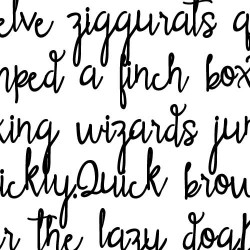 elve ziggurats q
mped a finch box
king wizards jum
ickly.Quick brow
r the lazy dog